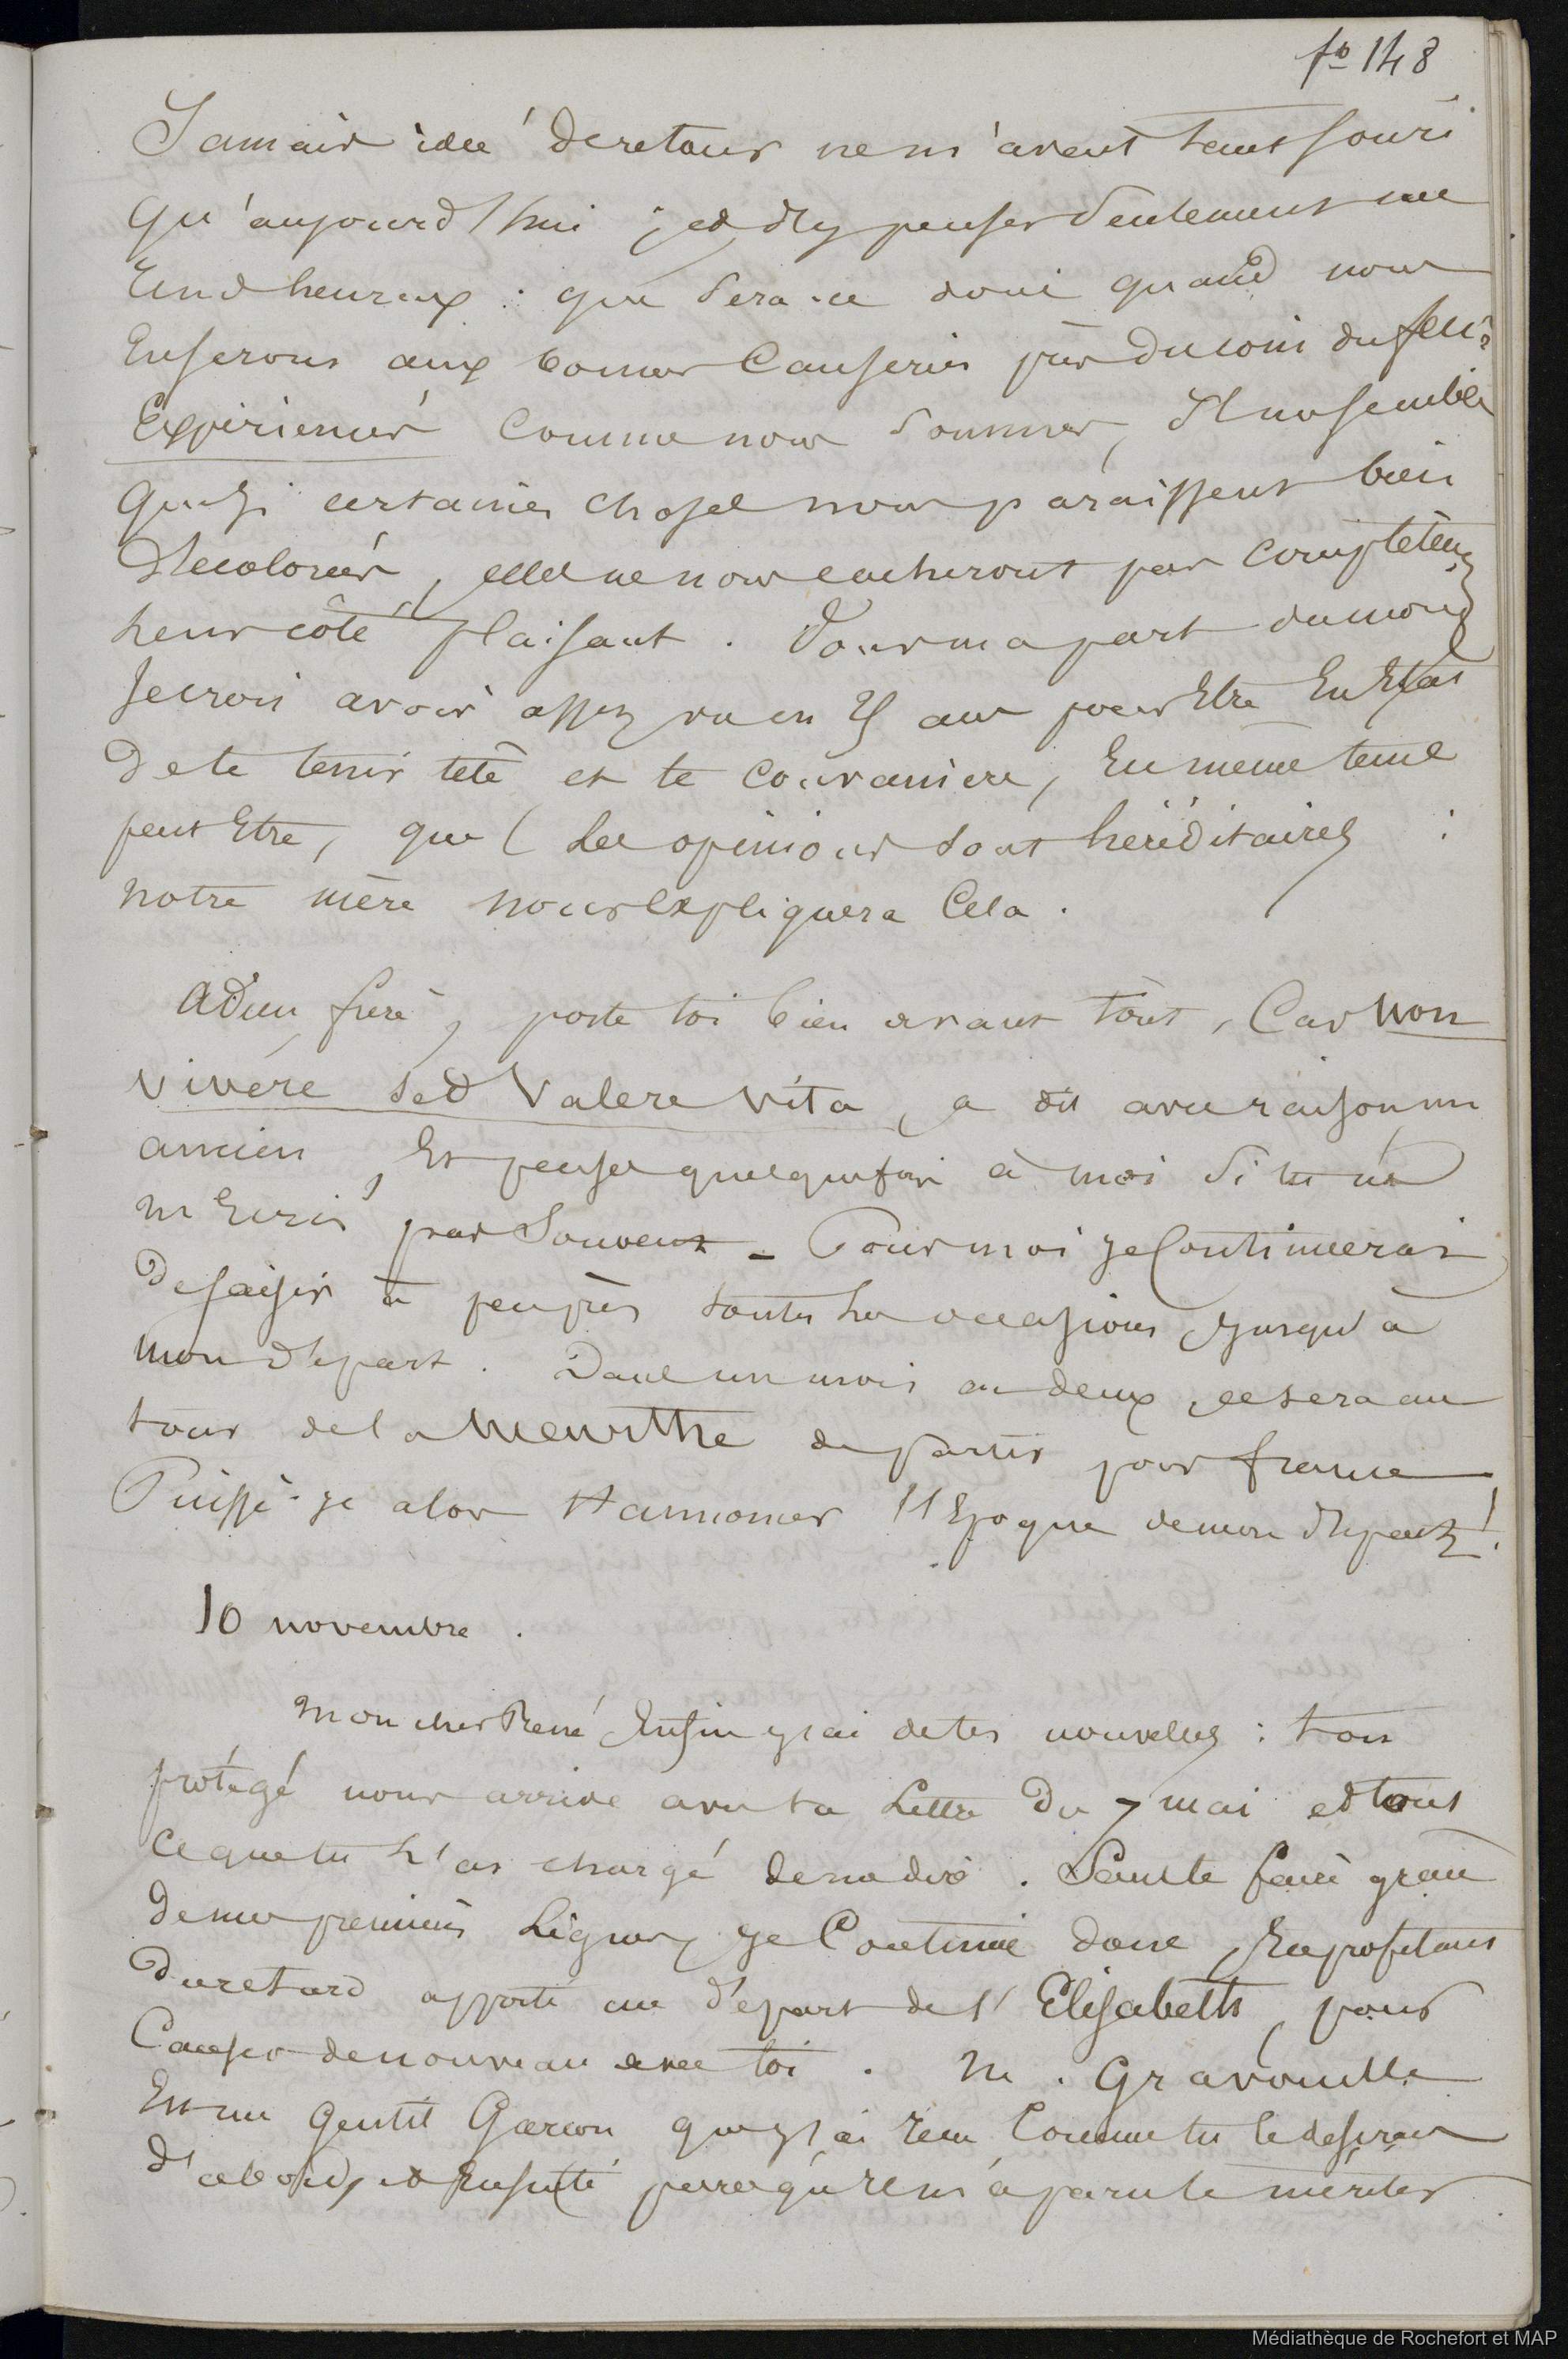 fo 148
Jamais idée de retour ne m'avait tant souri
qu'aujourd'hui ; et d'y penser seulement me
rend heureux : que sera-ce donc quand nous
en serons aux bonnes causeries près du coin du feu ?
Expériencés comme nous sommes, il me semble
que si certaines choses nous paraissent bien
décolorées, elles ne nous cacheront pas complètemt
leur côté plaisant. Pour ma part du moins
je crois avoir assez vu en 25 ans pour être en état
de te tenir tête et te convaincre, en même tems
peut être, que les opinions sont héréditaires :
notre mère nous expliquera cela.
Adieu frère, porte toi bien avant tout, car non
vivere sed valere vita, a dit avec raison un
ancien, et pense quelquefois à moi si tu ne
m'écris pas souvent - Pour moi je continuerai
de saisir à peu près toutes les occasions jusqu'à
mon départ. Dans un mois ou deux ce sera au
tour de la Meurthe de partir pour france
Puissé-je alors t'annoncer l'époque de mon départ !
10 novembre.
Mon cher René, enfin j'ai de tes nouvelles : ton
protégé nous arrive avec ta lettre du 7 mai et tout
ce que tu l'as chargé de me dire. Sans te faire grâce
de mes premières lignes, je continue donc, en profitant
du retard apporté au départ de l'Elisabeth, pour
causer de nouveau avec toi. M. Gravouille
est un gentil garçon que j'ai reçu comme tu le desirais
d'abord, et ensuite parce qu'il m'a paru le mériter
Médiathèque de Rochefort et MAP